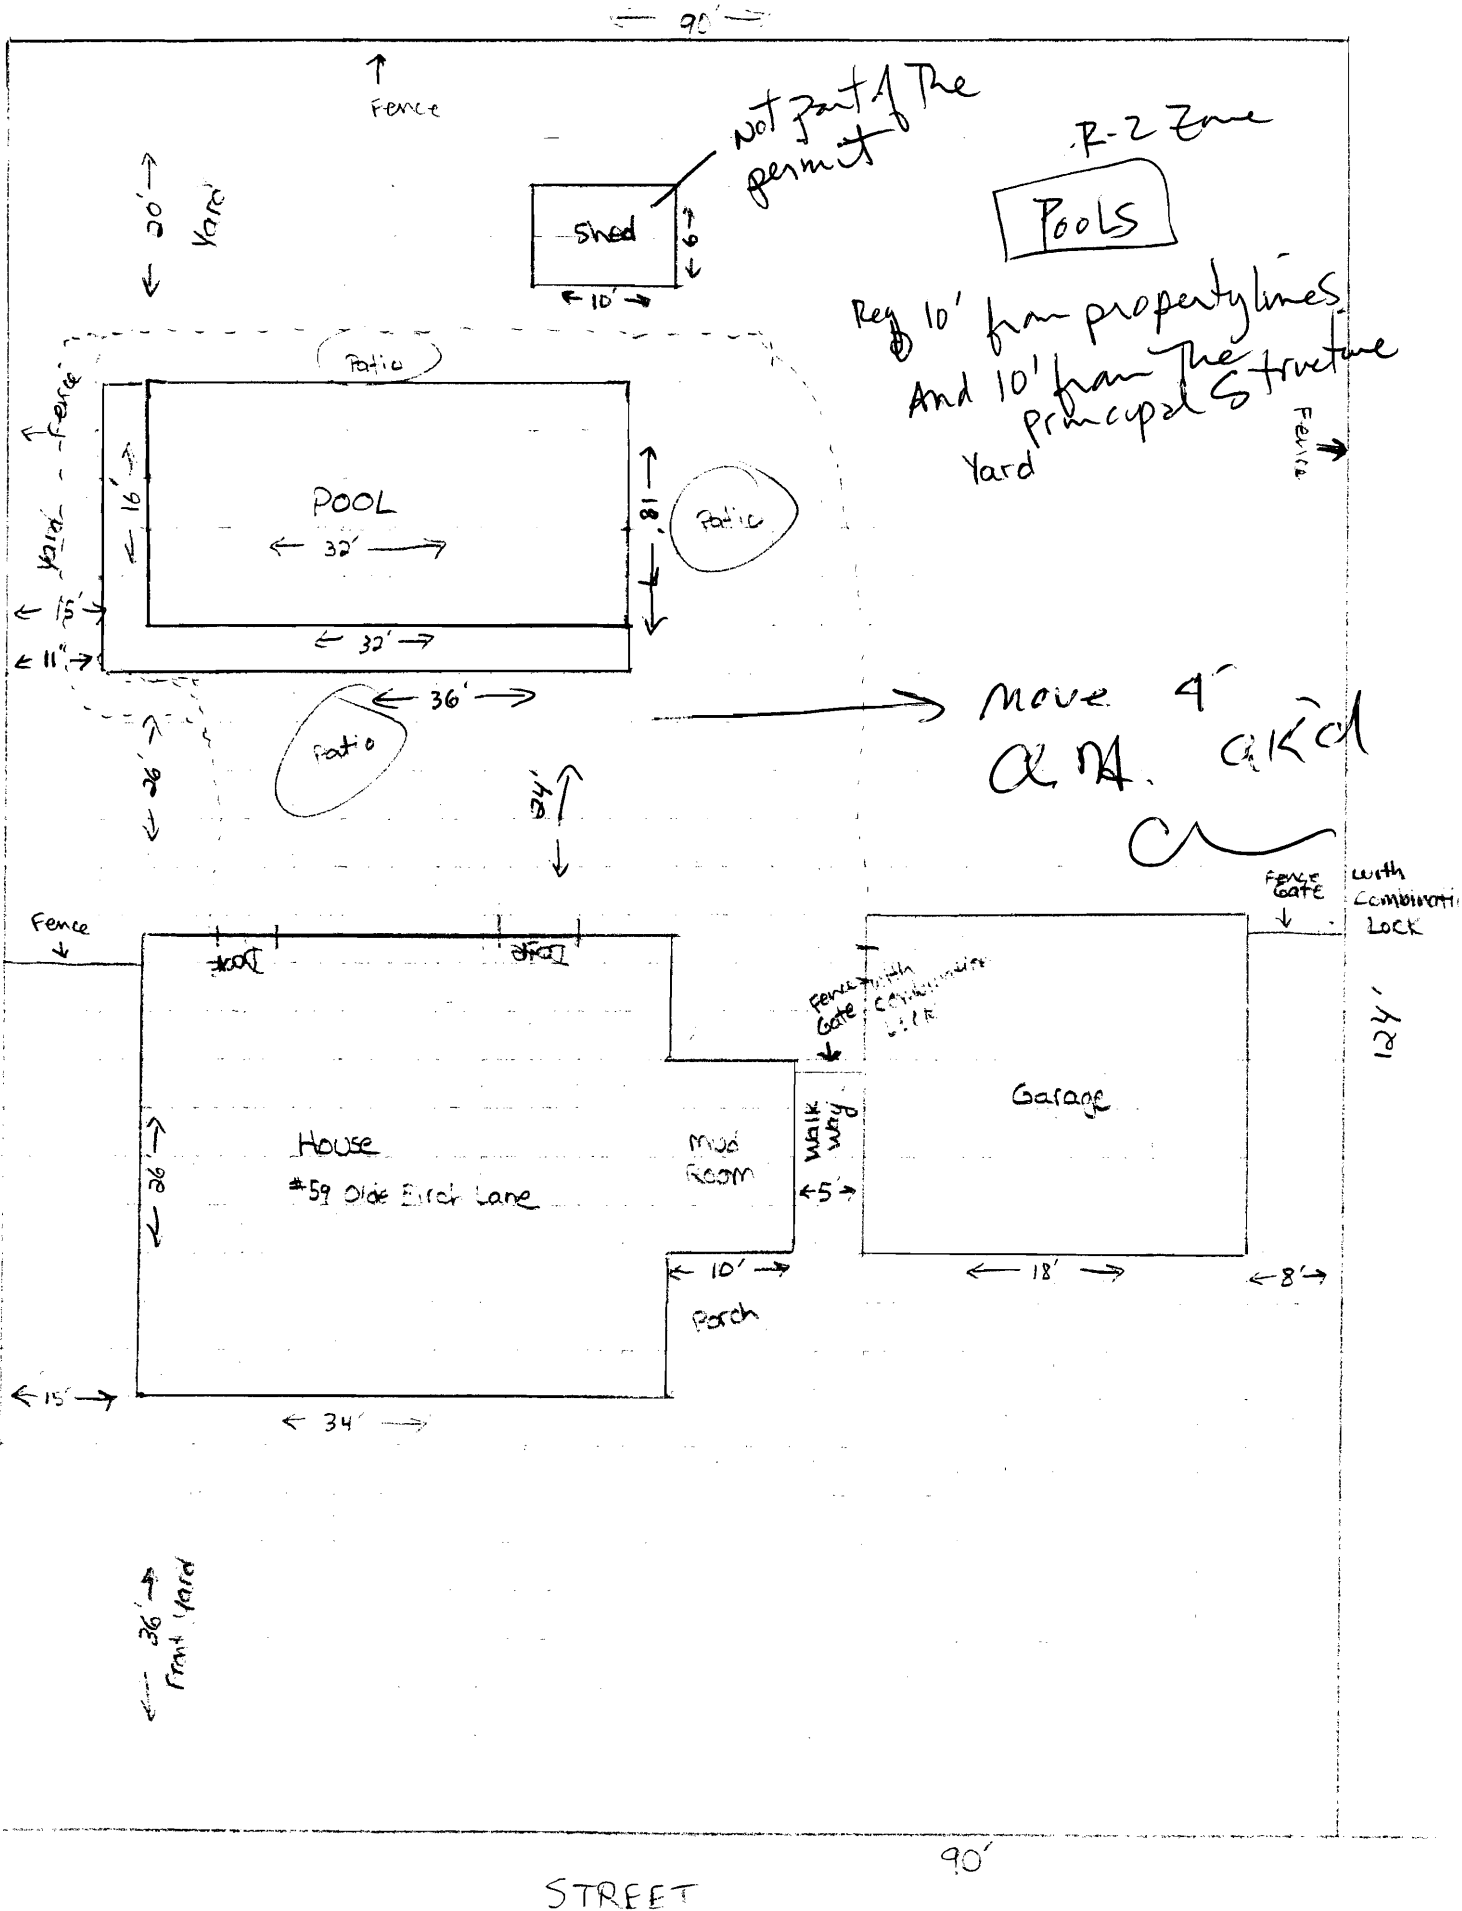 90'
Fence
Not part of The
permit
R-2 Zone
POOLS
20'
Yard
Shed
6
10'
Req 10' from property lines
And 10' from The
principal Structure
Yard
Patio
Fence
Yard
Fence
16'
POOL
32'
18'
Patio
15'
32'
11"
36'
Patio
26'
24'
move 4'
Fence
Gate
with
Combinati
Lock
Fence
Door
Door
Fence with
Gate combination
Lock
124'
Garage
House
#59 Olde Birch Lane
26'
Mud
Room
Walk
way
5'
10'
Porch
18'
8'
15'
34'
36'
Front Yard
90'
STREET